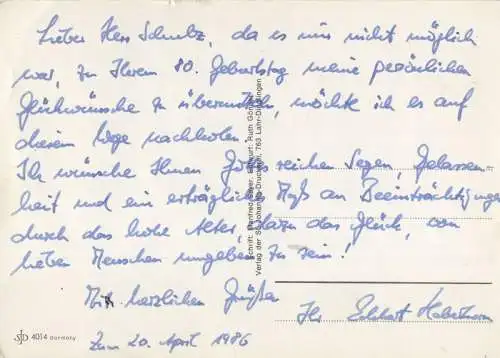 Lieber Herr Schulz, da es mir nicht möglich
war, zu Ihrem 80. Geburtstag meine persönlichen
Glückwünsche zu übermitteln, möchte ich es auf
diesem Wege nachholen.
Ihr wünsche Ihnen Gottes reichen Segen, Gelassen-
heit und ein erträgliches Maß an Beeinträchtigungen
durch das hohe Alter, dazu das Glück, von
lieben Menschen umgeben zu sein!
Mit herzlichen Grüßen
Ihr
Zum 20. April 1986
SJD 4014 Germany
Verlag der St.-Johannis-Druckerei, 763 Lahr-Dinglingen